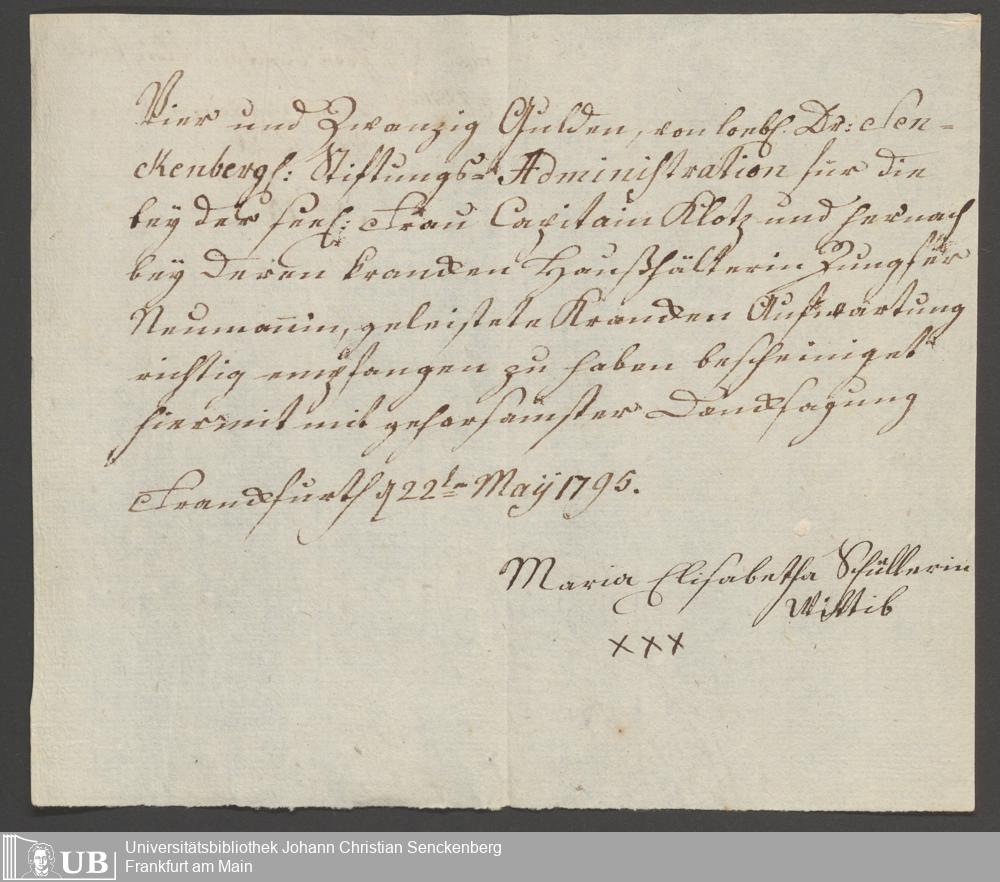 Vier und Zwanzig Gulden, von loebl. Dr: Sen-
ckenbergl: Stiftungs-Administration für die
bey der seel: Frau Capitain Klotz und hernach
bey deren krancken Haußhälterin Jungfer
Neumannin, geleistete Krancken Aufwartung
richtig empfangen zu haben bescheiniget
hiermit mit gehorsamster Dancksagung
Franckfurth d 22t= May 1795.
Maria Elisabetha Schüllerin
Wittib
xxx
UB
Universitätsbibliothek Johann Christian Senckenberg
Frankfurt am Main